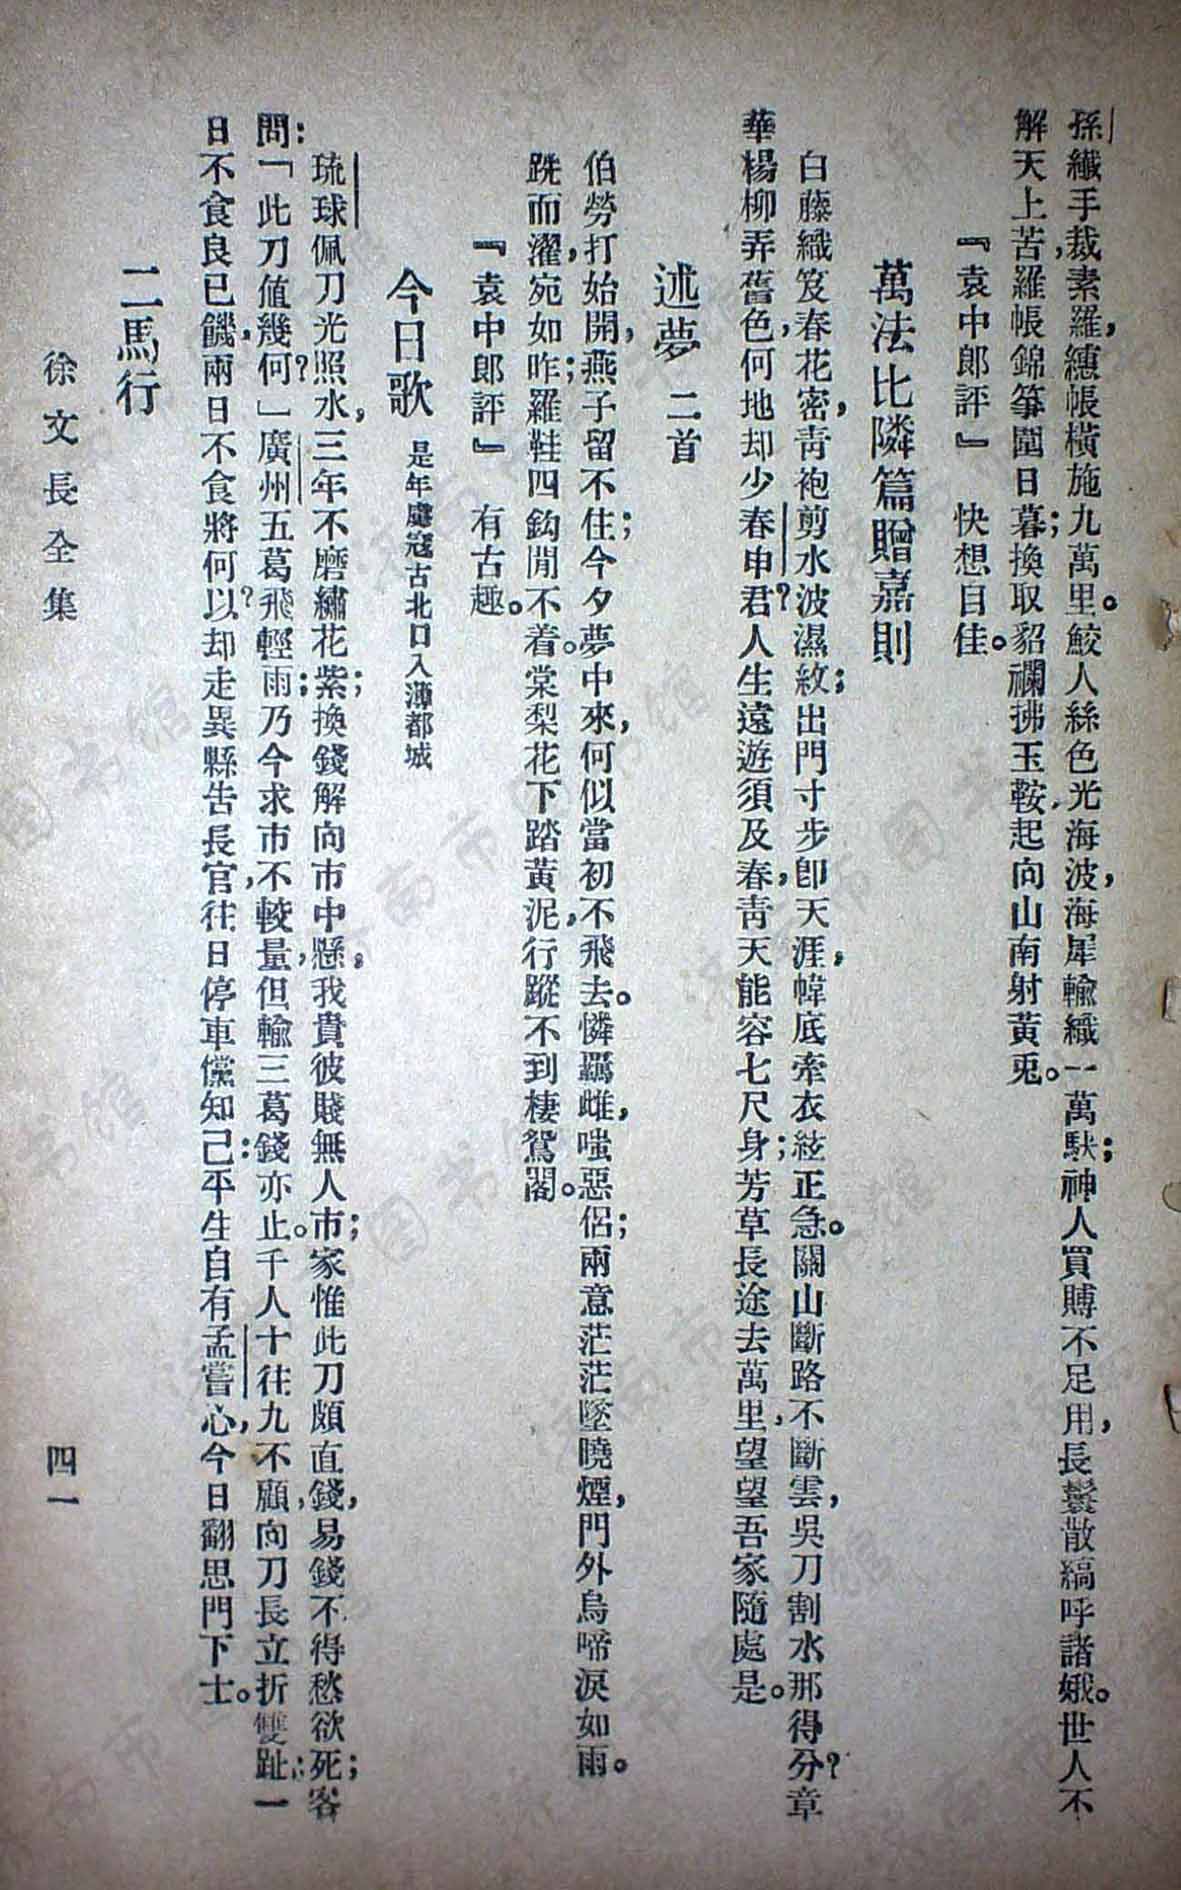 孫纖手裁素羅，繐帳橫施九萬里。鮫人絲色光海波，海犀輸織一萬馱；神人買賻不足用，長鬟散縞呼諸娥。世人不
解天上苦，羅帳錦篝圍日暮；換取貂襴拂玉鞍，起向山南射黃兎。
『袁中郎評』　快想自佳。
萬法比隣篇贈嘉則
白藤織笈春花密，青袍剪水波濕紋；出門寸步卽天涯，幃底牽衣絃正急。關山斷路不斷雲，吳刀割水那得分？章
華楊柳弄舊色，何地却少春申君？人生遠遊須及春，青天能容七尺身；芳草長途去萬里，望望吾家隨處是。
述夢　二首
伯勞打始開，燕子留不住；今夕夢中來，何似當初不飛去。憐羈雌，嗤惡侶；兩意茫茫墜曉煙，門外烏啼淚如雨。
跣而濯，宛如昨；羅鞋四鈎閒不着。棠梨花下踏黃泥，行蹤不到棲鴛閣。
『袁中郎評』　有古趣。
今日歌　是年虜寇古北口入薄都城
琉球佩刀光照水，三年不磨繡花紫；換錢解向市中懸，我貴彼賤無人市；家惟此刀頗直錢，易錢不得愁欲死；客
問：「此刀值幾何？」廣州五葛飛輕雨；乃今求市不較量，但輸三葛錢亦止。千人十往九不顧，向刀長立折雙趾；一
日不食良已饑，兩日不食將何以？却走異縣告長官，往日停車儻知己：平生自有孟嘗心，今日翻思門下士。
二馬行
徐文長全集
四一